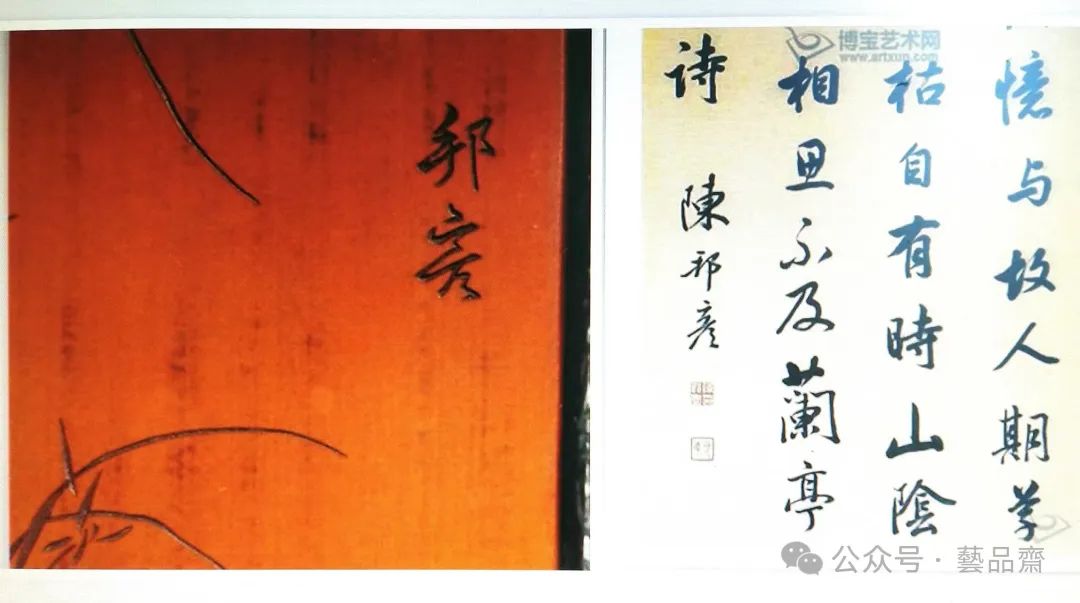 邦彦
憶与故人期
枯自有時山陰
相 不及蘭亭
詩 陳邦彦
博宝艺术网
www.artxun.com
公众号 · 藝品齋